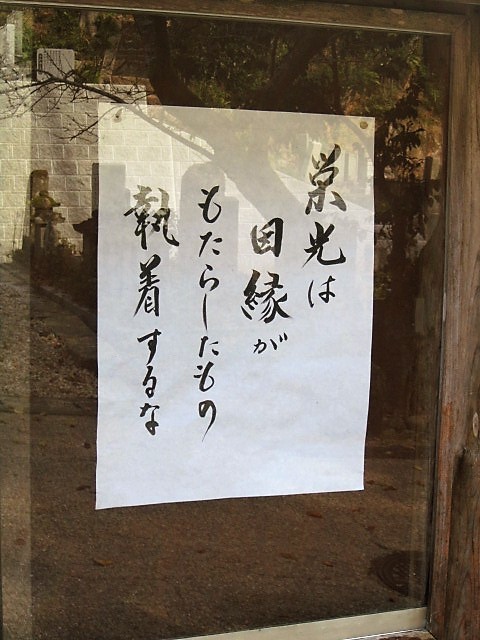 栄光は
因縁が
もたらしたもの
執着するな